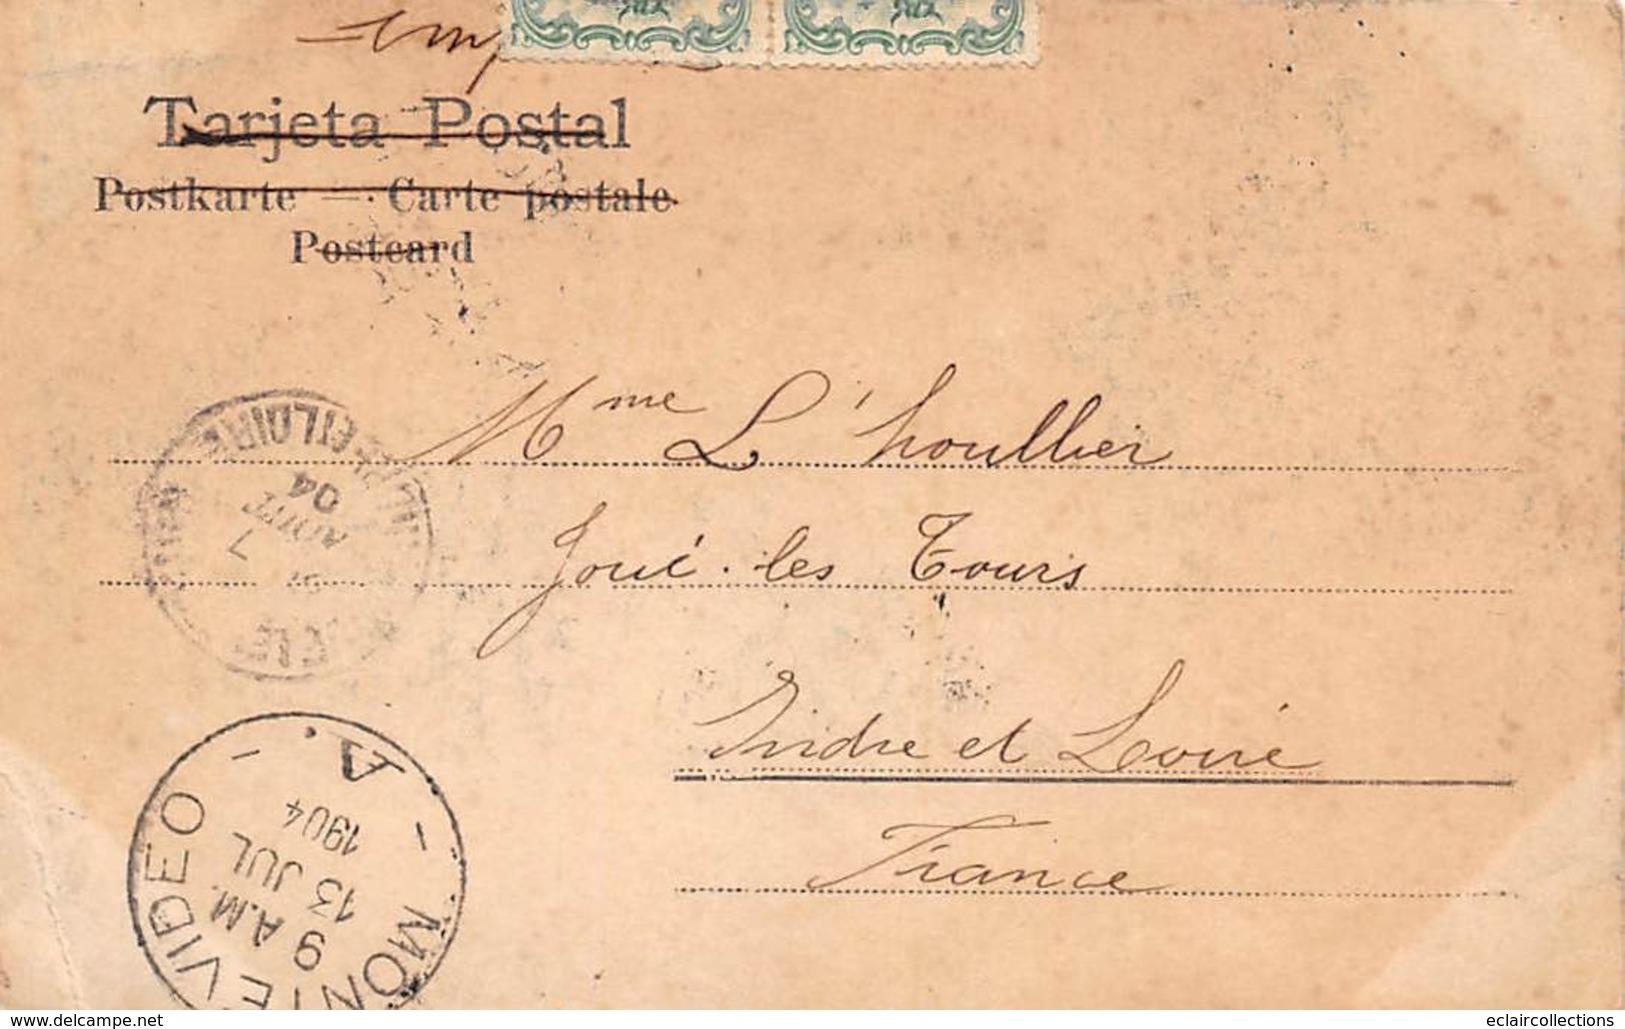 Tarjeta Postal
Postkarte — Carte postale
Postcard
Mme L'houllier
Joué-les Tours
Indre et Loire
France
7
04
A.
MONTEVIDEO
9 A.M.
13 JUL
1904
www.delcampe.net
eclaircollections